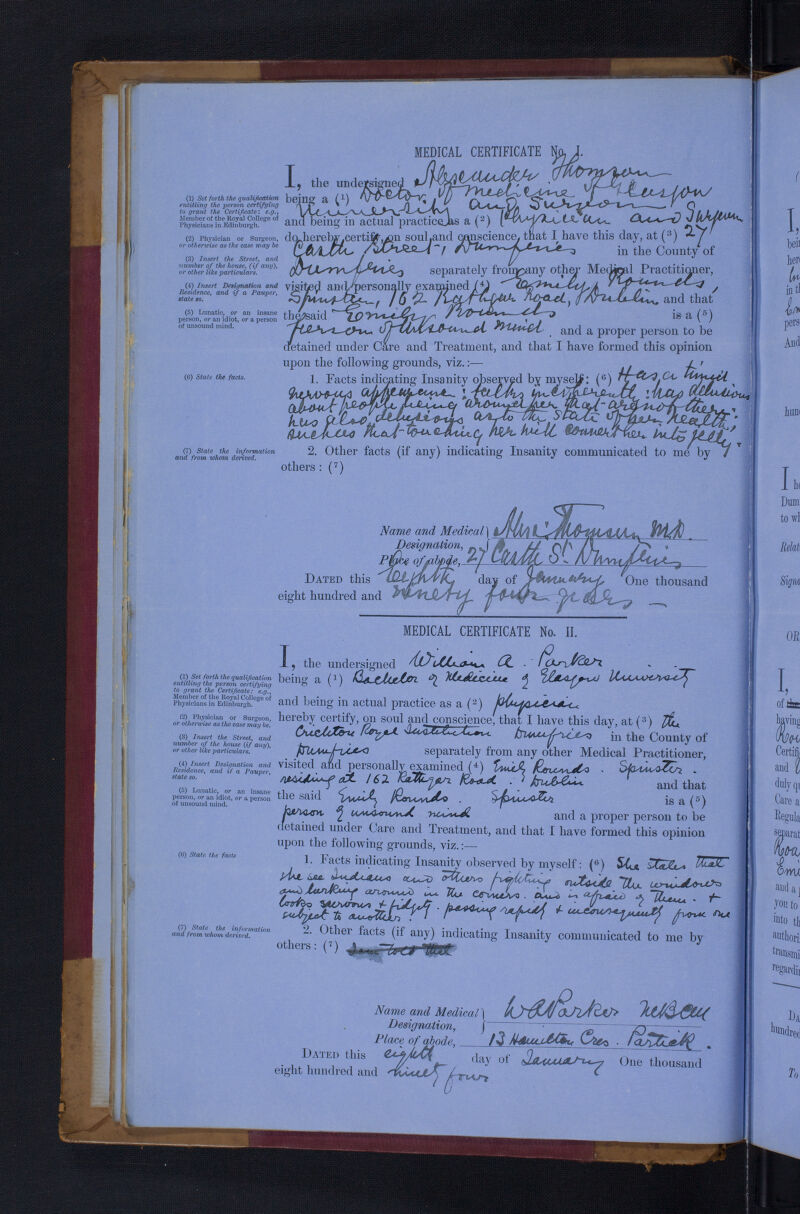 MEDICAL CERTIFICATE No. I.
I, the undersigned Alexander Thomson
(1) Set forth the qualification entitling the person certifying to grant the Certificate: e.g., Member of the Royal College of Physicians in Edinburgh.
being a (1) Doctor of Medicine of Glasgow
University and Surgeon
and being in actual practice as a (2) Physician and Surgeon
(2) Physician or Surgeon, or otherwise as the case may be
do hereby certify, on soul and conscience, that I have this day, at (3) 27
Castle Street, Dumfries in the County of
(3) Insert the Street, and number of the house, (if any), or other like particulars.
Dumfries separately from any other Medical Practitioner,
(4) Insert Designation and Residence, and if a Pauper, state so.
visited and personally examined (4) Emily Rounds,
Spinster, 162 Rathgar Road, Dublin and that
(5) Lunatic, or an insane person, or an idiot, or a person of unsound mind.
the said Emily Rounds is a (5)
person of unsound mind and a proper person to be
detained under Care and Treatment, and that I have formed this opinion
upon the following grounds, viz.:—
(6) State the facts.
1. Facts indicating Insanity observed by myself: (6) Has a timid
nervous appearance: talks incoherently: has delusions
about people being around her that are not there:
has also delusions as to the state of her health,
such as that touching her will convert her into jelly.
(7) State the information and from whom derived.
2. Other facts (if any) indicating Insanity communicated to me by
others: (7)
Name and Medical Designation, Alexr Thomson M.D.
Place of abode, 27 Castle St. Dumfries
DATED this Eighth day of January One thousand
eight hundred and ninety four years
MEDICAL CERTIFICATE No. II.
I, the undersigned William A. Parker
(1) Set forth the qualification entitling the person certifying to grant the Certificate: e.g., Member of the Royal College of Physicians in Edinburgh.
being a (1) Bachelor of Medicine of Glasgow University
and being in actual practice as a (2) physician
(2) Physician or Surgeon, or otherwise as the case may be.
hereby certify, on soul and conscience, that I have this day, at (3) The
Crichton Royal Institution Dumfries in the County of
(3) Insert the Street, and number of the house (if any), or other like particulars.
Dumfries separately from any other Medical Practitioner,
(4) Insert Designation and Residence, and if a Pauper, state so.
visited and personally examined (4) Emily Rounds. Spinster.
residing at 162 Rathgar Road. Dublin and that
(5) Lunatic, or an insane person, or an idiot, or a person of unsound mind.
the said Emily Rounds. Spinster is a (5)
person of unsound mind and a proper person to be
detained under Care and Treatment, and that I have formed this opinion
upon the following grounds, viz.:—
(6) State the facts
1. Facts indicating Insanity observed by myself: (6) She states that
she see Indians and others fighting outside the windows
and lurking around in the corners. and is afraid of them. +
looks nervous + fidgety. passing rapidly + inconsequently from one
subject to another.
(7) State the information and from whom derived.
2. Other facts (if any) indicating Insanity communicated to me by
others: (7)
Name and Medical Designation, W A Parker MB CM
Place of abode, 13 Hamilton Cres. Partick.
DATED this eighth day of January One thousand
eight hundred and ninety four